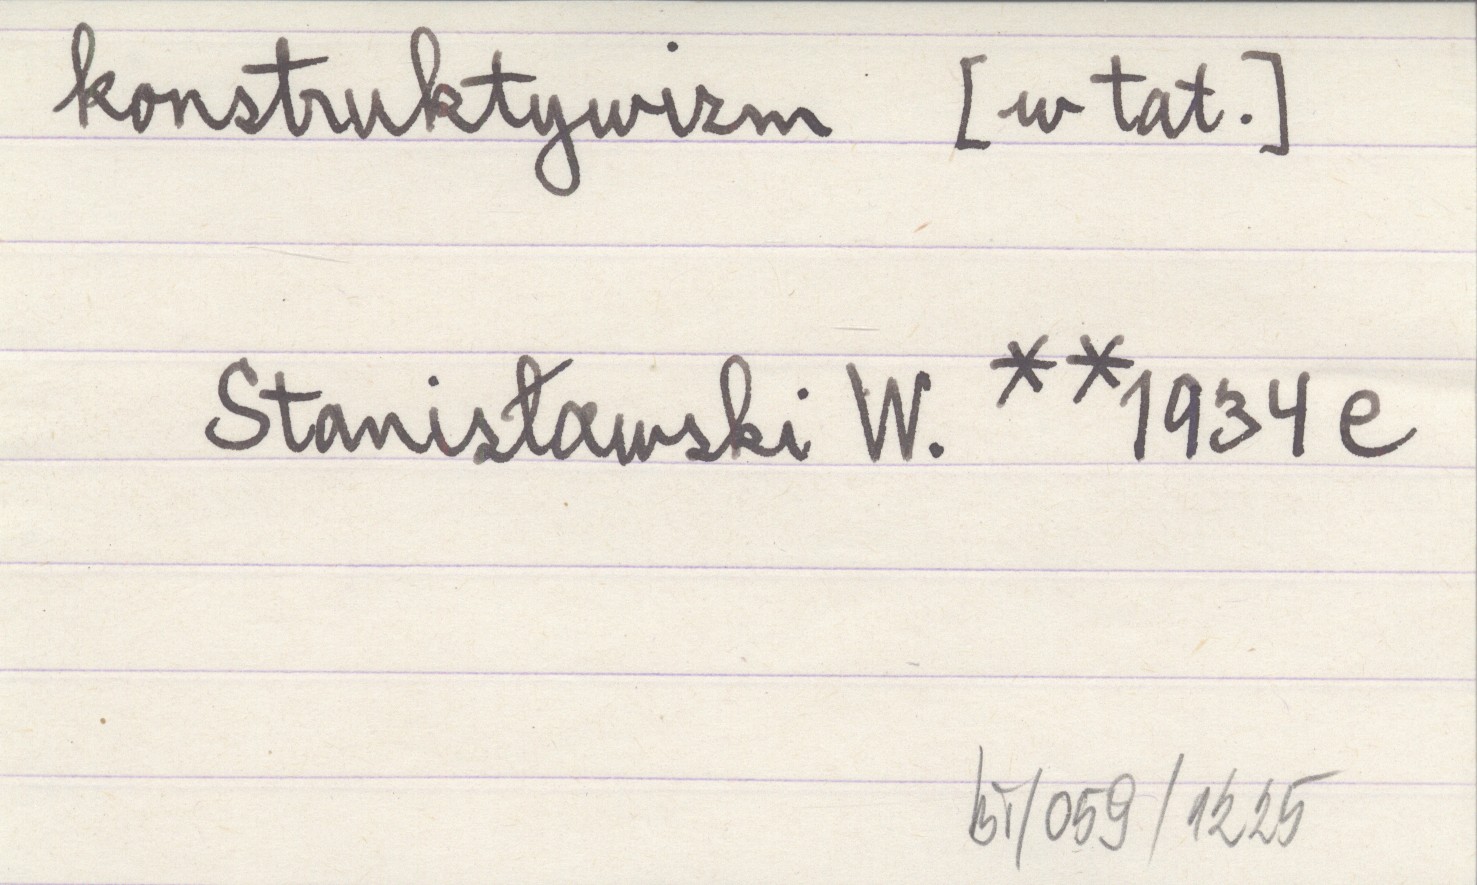 konstruktywizm [w tat.]
Stanisławski W. **1934 e
bt/059/1225